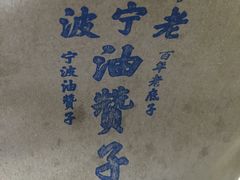 老宁波
油贊子
百年老底子
宁波油贊子